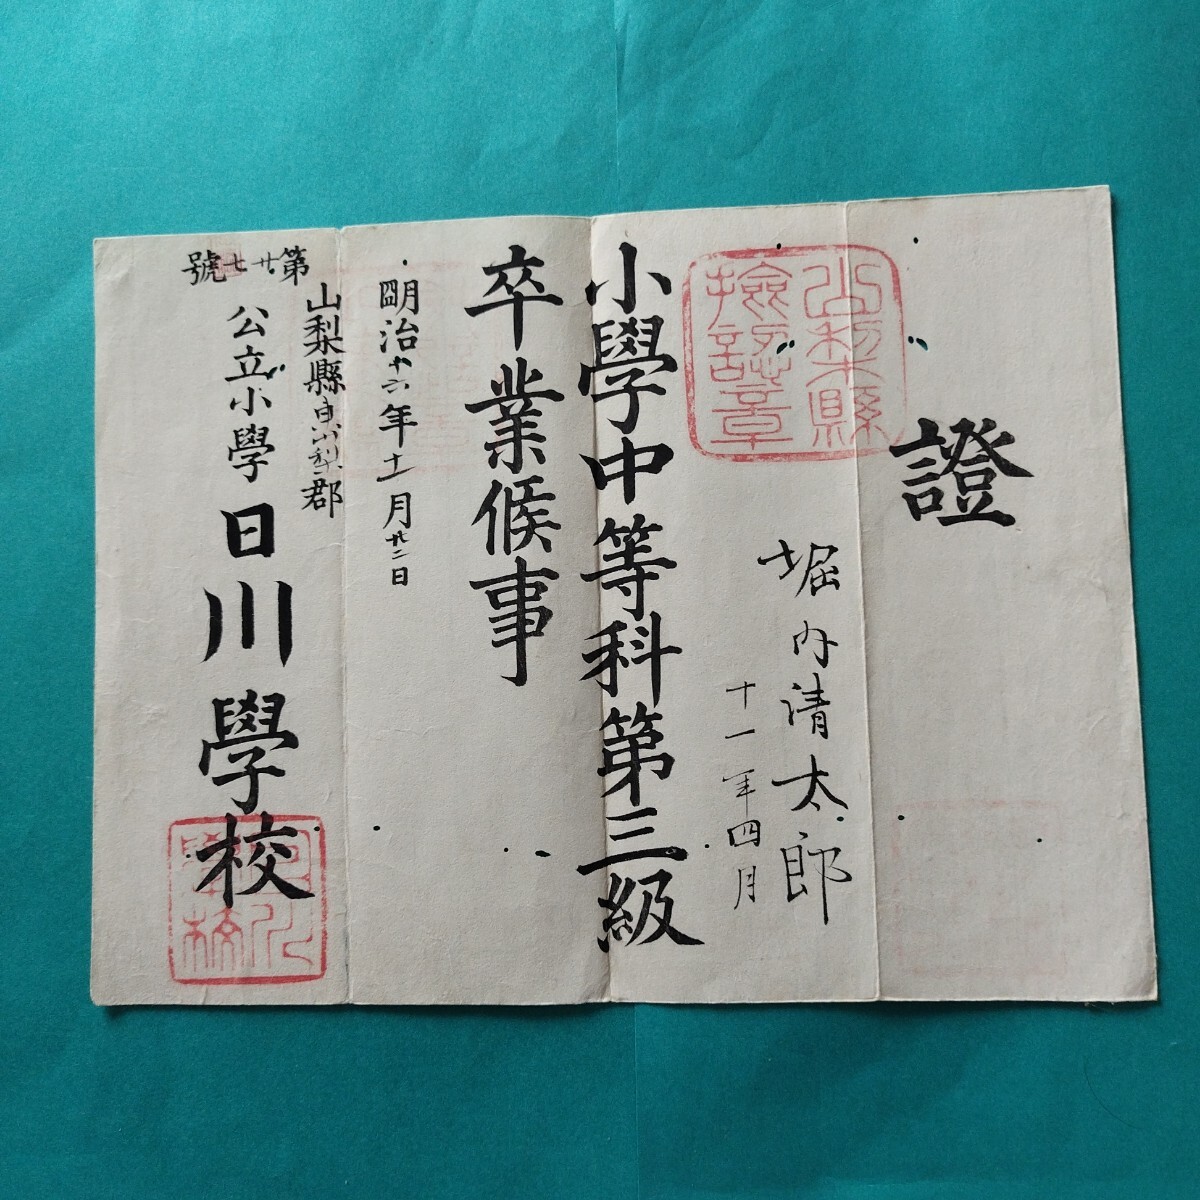 證
山梨縣
撿認章
堀内清太郎
十一年四月
小學中等科第三級
卒業候事
明治十六年十一月廿二日
山梨縣東山梨郡
公立小學日川學校
第廿七號
日川
學校